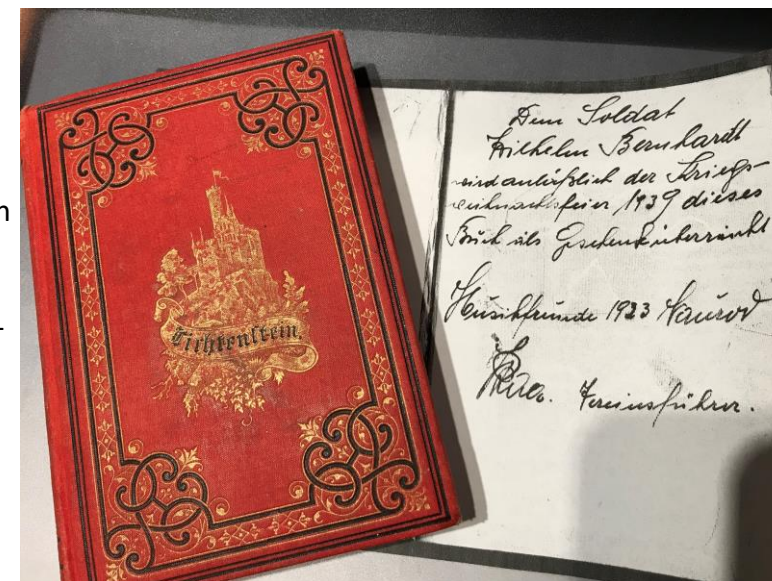 Lichtenstein.
Dem Soldat
Wilhelm Bernhardt
wird anläßlich der Kriegs-
weihnachtsfeier 1939 dieses
Buch als Geschenk überreicht
Musikfreunde 1923 Naurod
Vereinsführer.
n
-